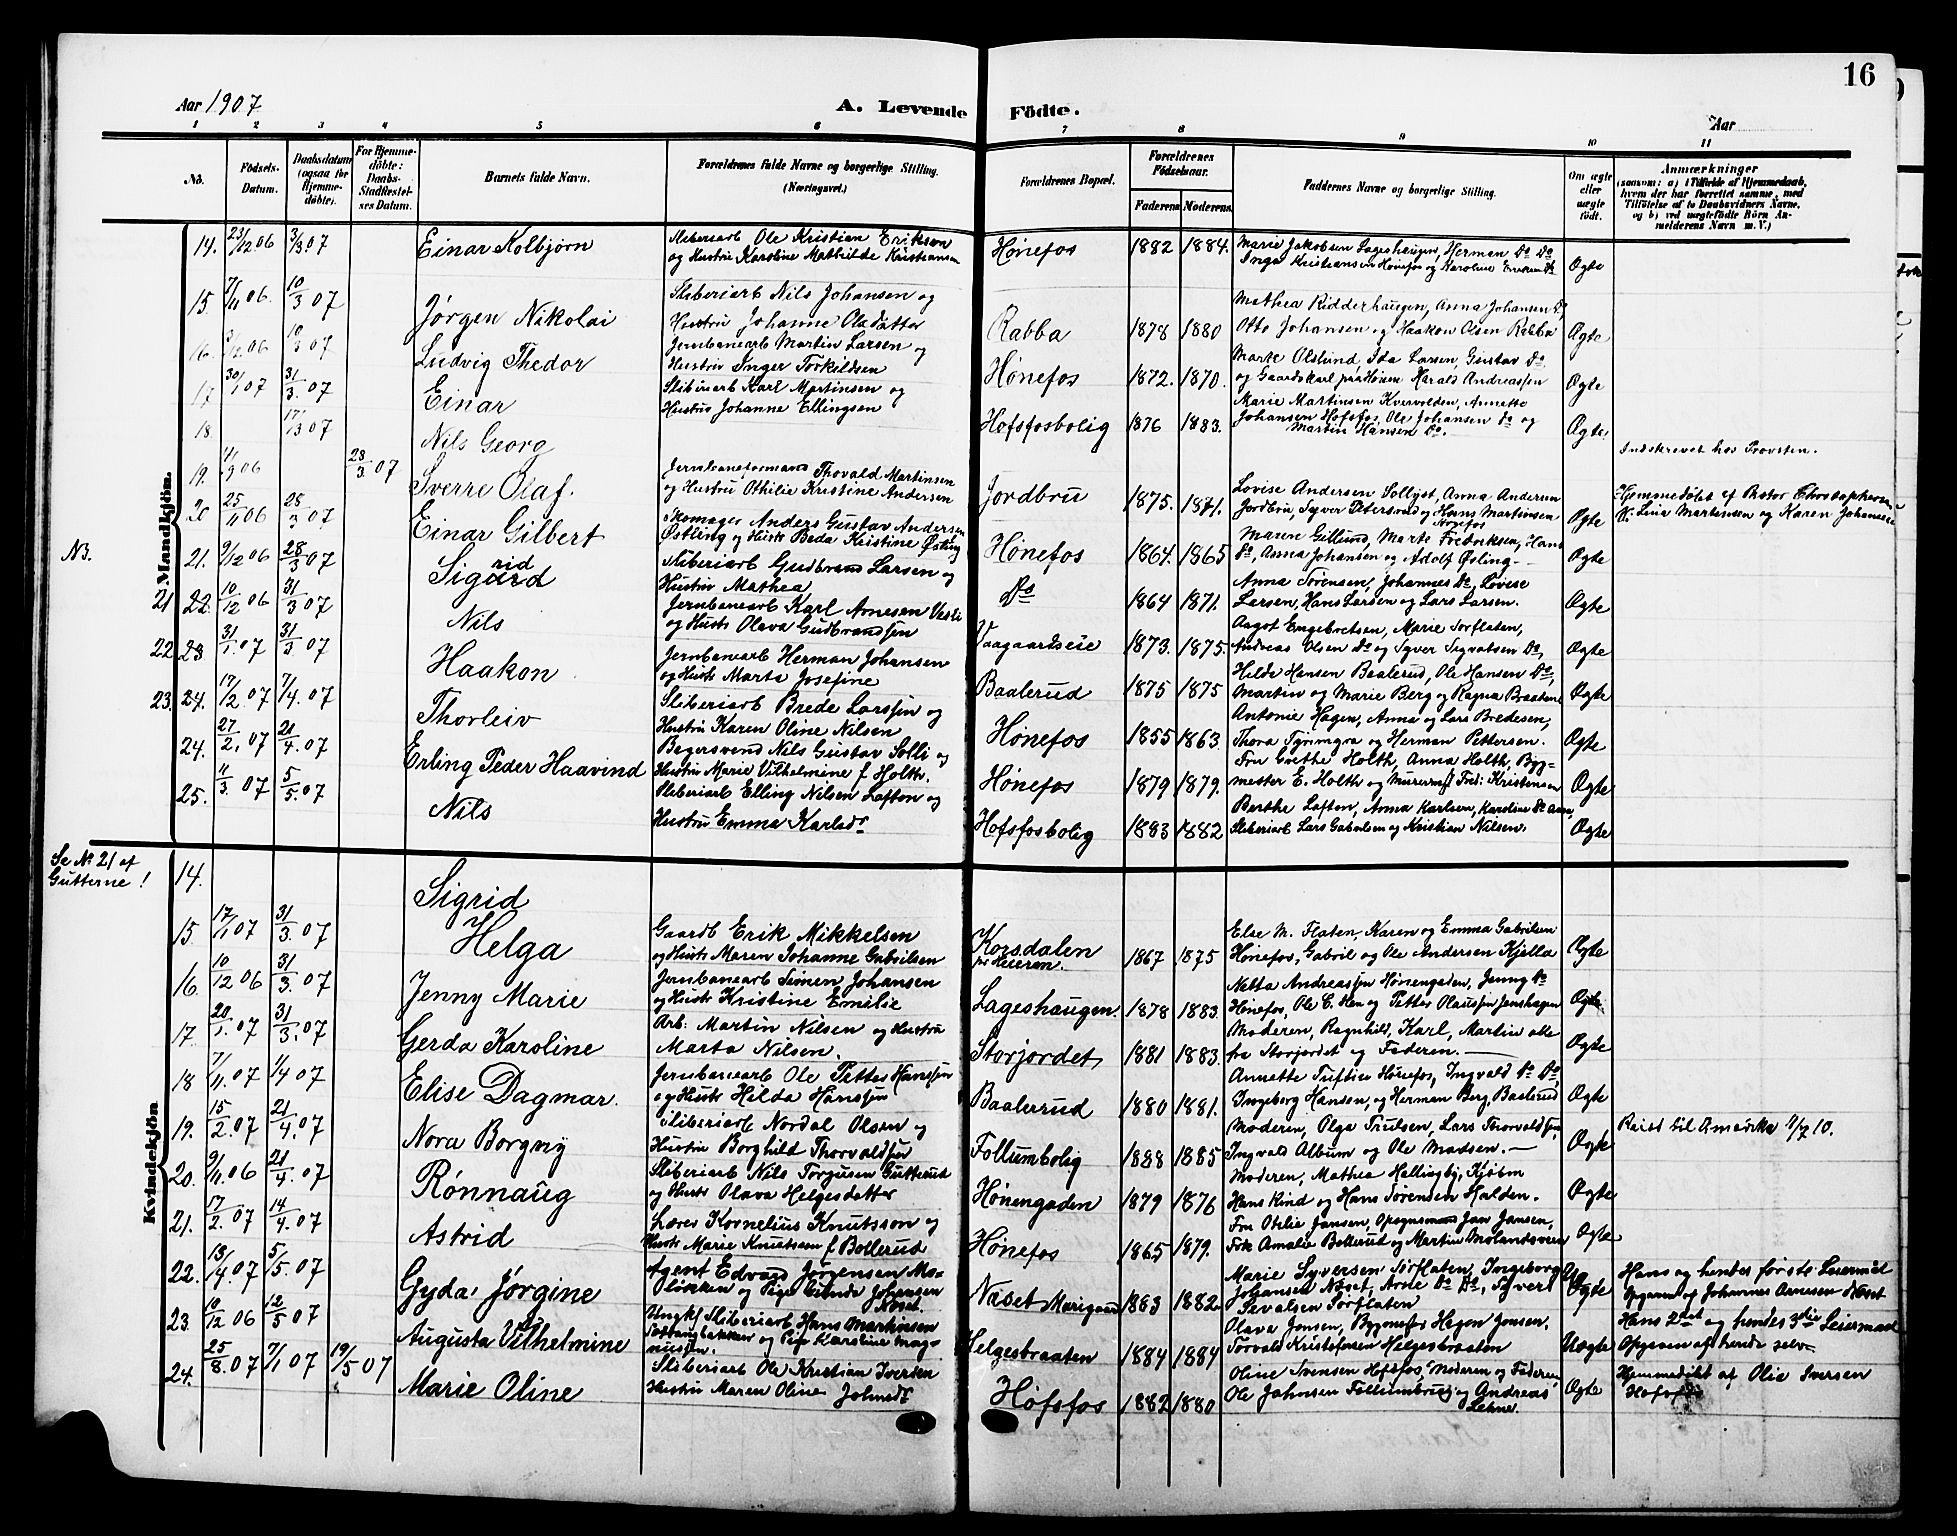 16
Aar 1907
A. Levende Födte.
Aar
1 2 3 4 5 6 7 8 9 10 11
No.
Födsels-Datum.
Daabsdatum (ogsaa for Hjemme-döbte).
For Hjemme-döbte: Daabs-Stadfæstel-ses Datum.
Barnets fulde Navn.
Forældrenes fulde Navne og borgerlige Stilling. (Næringsvei.)
Forældrenes Bopæl.
Forældrenes Födselsaar.
Faderens Moderens
Faddernes Navne og borgerlige Stilling.
Om ægte eller uægte födt.
Anmærkninger (saasom: a) i Tilfælde af Hjemmedaab, hvem der har forrettet samme, med Tilföielse af to Daabsvidners Navne, og b) ved uægtefödte Börn An-melderens Navn m. V.)
Mandkjön.
14. 23/12 06 3/3 07 Einar Kolbjörn
Sliberiarb Ole Kristian Erikson
og Hustru Karoline Mathilde Kristiansen
Hönefos 1882 1884.
Marie Jakobsen Lageshaugen, Herman Do Do
Inga Kristiansen Hönefos og Karoline
Ægte
15. 7/11 06. 10/3 07 Jørgen Nikolai
Sliberiarb Nils Johansen og
Hustru Johanne Olsdatter
Rabba 1878 1880
Mathea Ridderhaugen, Anna Johansen
Otto Johansen og Haakon Olsen Rabba
Ægte
16. 3/12 06 10/3 07 Ludvig Thedor
Jernbanearb Martin Larsen og
Hustru Inger Torkildsen
Hönefos 1872. 1870.
Marte Olslund, Ida Larsen, Gustav Do
og Gaardskarl Harald Andreassen
Ægte
17 30/1 07 31/3. 07 Einar
Sliberiarb Karl Martinsen og
Hustru Johanne Ellingsen
Hofsfosbolig 1876 1883.
Marie Martinsen Kvervolden, Annette
Johansen Hofsfos, Ole Johansen Do og
Martin Hansen Do.
Ægte
18. 17/3 07 Nils Georg
Indskrevet hos Provsten.
19. 11/9 06 28/3 07 Sverre Olaf.
Jernbaneformand Thorvald Martinsen
og Hustru Othilie Kristine Andersen
Jordbru 1875. 1871.
Lovise Andersen Sollyst, Anna Andersen
Jordbru, Syver Petersrud og Hans Martinsen
Hönefos
Ægte
Hjemmedöbt af Pastor Christophersen
V. Lina Martinsen og Karen Johansen
20 25/11 06 28/3 07 Einar Gilbert
Skomager Anders Gustav Andersen
Østling og Hustr Beda Kristine Østling
Hönefos 1864. 1865
Maren Gillund, Marte Fredriksen, Hans
Do, Anna Johansen og Adolf Østling
Ægte
NB.
21. 9/12 06 28/3 07 Sigurd
rid
Sliberiarb Gudbrand Larsen og
Hustru Mathea
Do 1864 1871.
Anna Sörensen, Johannes Do, Lovise
Larsen, Hans Larsen og Lars Larsen.
Ægte
21 22. 10/12 06 31/3 07 Nils
Jernbanearb Karl Arnesen
og Hustr Olava Gudbrandsen
Vaagaardseie 1873. 1875.
Aagot Engebretsen, Marie Torflaten,
Andreas Olsen Do og Syver Sigvatsen Do
Ægte
22 23 31/1. 07 31/3 07 Haakon
Jernbanearb Herman Johansen
og Hustr Marta Josefine
Baalerud 1875 1875
Hilda Hansen Baalerud, Ole Hansen Do,
Martin og Marie Berg og Ragna Braaten
Ægte
23. 24. 17/2. 07 7/4. 07 Thorleiv
Sliberiarb Brede Larssen og
Hustru Karen Oline Nilsen
Hönefos 1855 1863.
Antonie Hagen, Anna og Lars Bredesen,
Thora og Herman Pettersen.
Ægte
24. 27/2. 07 21/4. 07 Erling Peder Haavind
Bagersvend Nils Gustav Solli og
Hustru Marie Vilhelmine f. Holth.
Hönefos 1879 1879.
Fru Grethe Holth, Anna Holth, Byg-
mester E. Holth og Murerm Kristensen
Ægte
25. 11/3. 07 5/5. 07 Nils
Sliberiarb Elling Nilsen Lofton og
Hustru Emma Karlsdr
Hofsfosbolig 1883 1882
Berthe Lofton, Anna Karlsen, Karoline Do
Sliberiarb Lars Gabrielsen og Kristian Nilsen.
Ægte
Kvindekjön
Se No 21 af
Gutterne!
14. Sigrid
15. 17/1 07 31/3. 07 Helga
Gaardb Erik Mikkelsen
og Hustr Maren Johanne Gabrilsen
Korsdalen 1867 1875
Else M. Flaten, Karen og Emma Gabrilsen
Hönefos, Gabril og Ole Andersen Kjella
Ægte
16. 10/12 06 31/3. 07 Jenny Marie
Jernbanearb Simen Johansen
og Hustr Kristine Emilie
Lageshaugen. 1878 1883.
Netta Andreassen Hönengaden, Jenny Do
Hönefos, Ole C. Hen og Petter Olaussen
Ægte
17. 20/1. 07 31/3. 07 Gerda Karoline
Arb: Martin Nilsen og Hustru
Marta Nilsen.
Storjordet 1881 1883.
Moderen, Ragnhild, Karl, Martin alle
fra Storjordet og Faderen.
Ægte
18 7/11. 07 1/4 07 Elise Dagmar.
Jernbanearb Ole Petter Hanssen
og Hustr Hilda Hanssen
Baalerud 1880 1881.
Annette Tuftin Hönefos, Ingvald Do Do,
Ingeborg Hansen, og Herman Berg, Baalerud
Ægte
19. 15/2. 07 21/4. 07 Nora Borgny
Sliberiarb Nordal Olsen og
Hustru Borghild Thorvaldsen
Follumbolig 1888 1885
Moderen, Olga Trulsen, Lars Thorvaldsen,
Ingvald Album og Ole Madsen.
Ægte
Reist til Amerika 1/7 10.
20. 9/11 06 21/4. 07 Rönnaug
Sliberiarb Nils Torgusen Gutterud
og Hustr Olava Helgesdatter
Hönengaden 1879 1876
Moderen, Mathea Hallingby, Kjöbm
Hans Rind og Hans Sörensen Halden.
Ægte
21. 17/2. 07 14/4. 07 Astrid
Lærer Kornelius Knutsson og
Hustr Marie Knutsen f. Bollerud
Hönefos 1865 1879.
Fru Otelie Jansen, Opsynsmand Jan Jansen,
Frk Amalie Bollerud og Martin Molandsveen
Ægte
22. 13/4. 07 5/5. 07 Gyda Jørgine
Agent Edvard Jørgensen Mo-
løkken og Pige Gunda Johansen
Næset
Næset 1883 1882
Marie Syversen Torflaten, Ingeborg
Johansen Næset, Arne Do Do, Syvert
Sevalsen Torflaten
Uægte
Hans og hendes förste Leiermål
Opgivet af Johannes Arnesen Næset
23. 10/12 06 12/5 07 Augusta Vilhelmine
Ungk Sliberiarb Hans Martinsen
og Pige Karoline Mag-
nussen.
Helgesbraaten 1884 1884
Olava Jonsen, Bygmester Hagen Jonsen,
Torvald Kristofersen Helgesbraaten
Uægte
Hans 2det og hendes 3die Leiermaal
Opgivet af hende selv
24. 25/8. 07 7/1 07 19/5 07 Marie Oline
Sliberiarb Ole Kristian Iversen
Hustru Maren Oline Johnsdr
Hofsfos 1882 1880
Oline Svensen Hofsfos, Moderen og Faderen
Ole Johnsen Follumbrug og Andreas
Lehne.
Ægte
Hjemmedöbt af Olia Iversen
Hofsfos